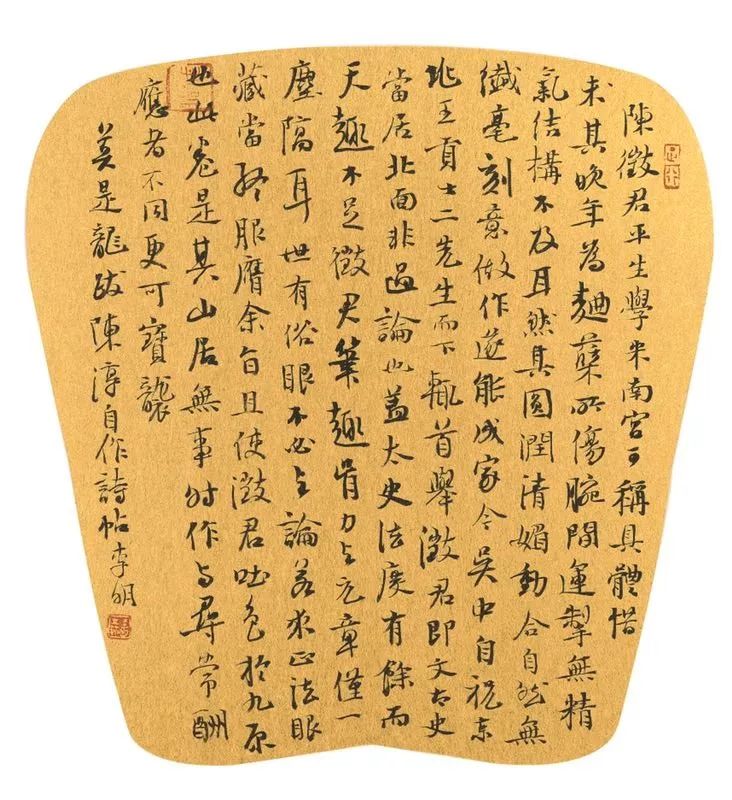 陳徵君平生學米南宮可稱具體惜
未其晚年為麯蘖所傷腕間運掣無精
氣结構不及耳然其圓潤清媚動合自然無
纖毫刻意做作遂能成家今吳中自祝京
兆王貢士二先生而下輒首舉徵君即文太史
當居北面非過論也蓋太史法度有餘而
天趣不足徵君筆趣骨力与元章僅一
塵隔耳世有俗眼不必与論若求正法眼
藏當終服膺余旨且使徵君吐色於九原
也此卷是其山居無事时作与尋常酬
應者不同更可寶襲
莫是龍跋陳淳自作詩帖李明